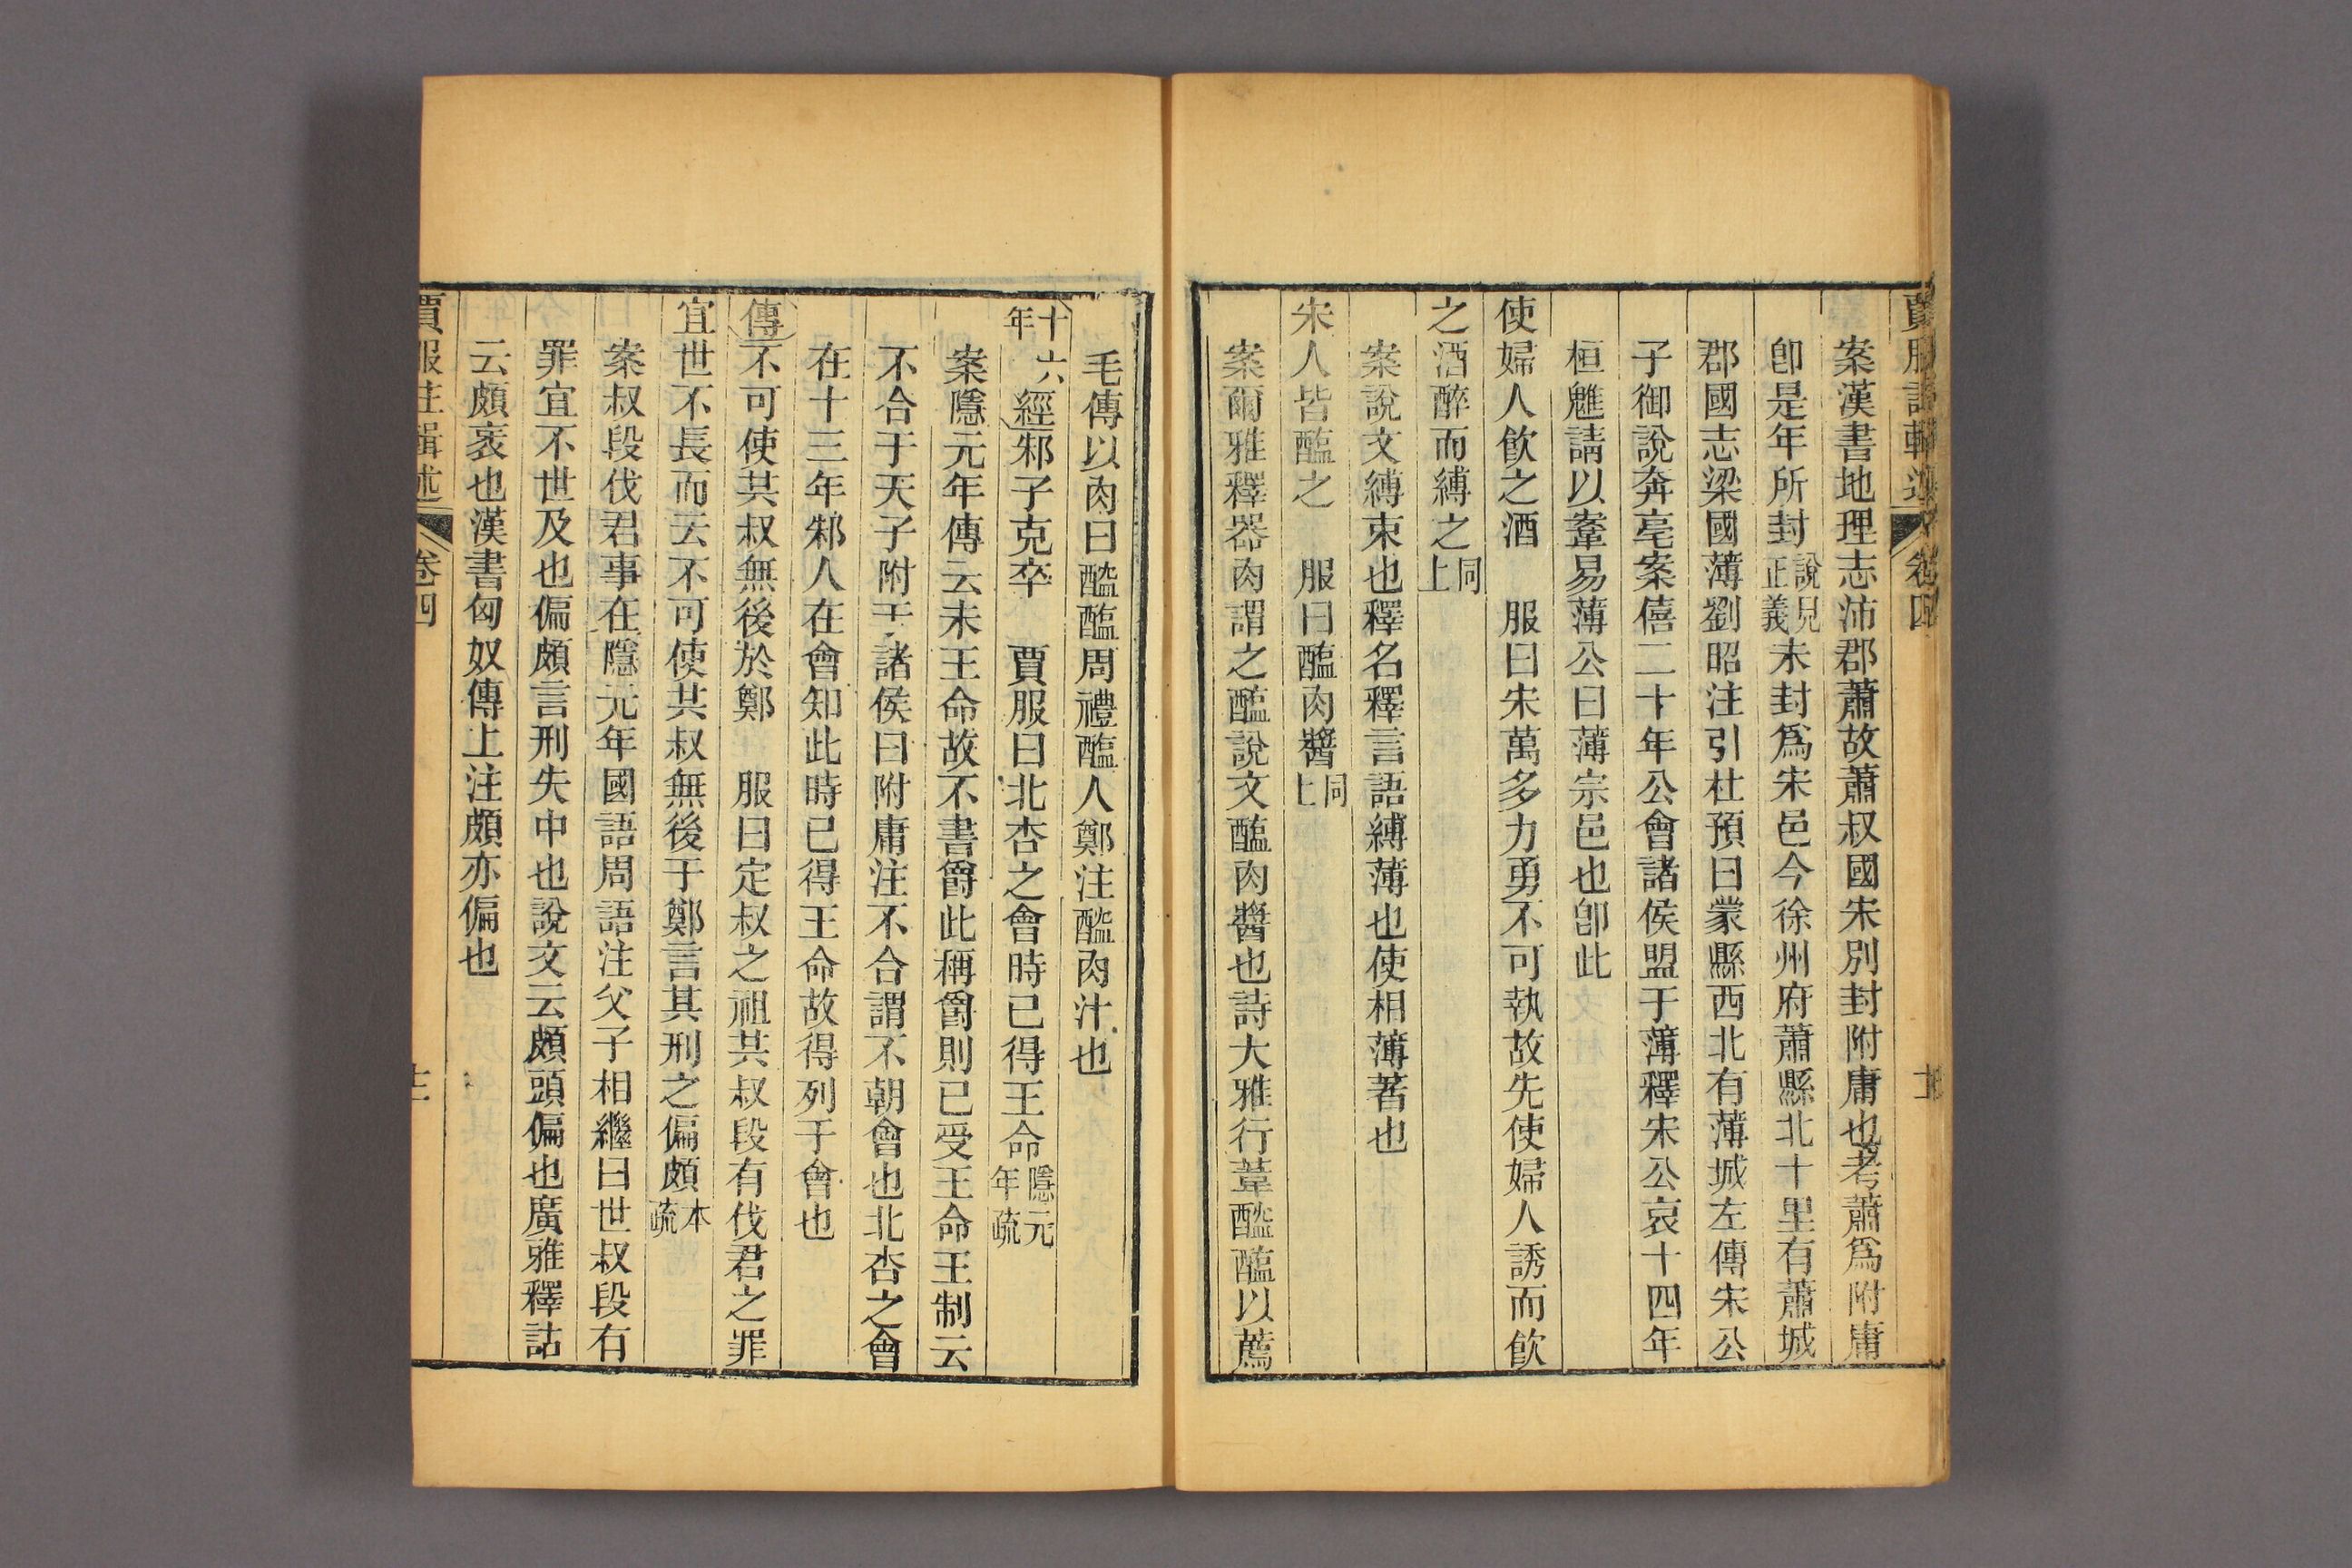 賈服註輯述 卷四 十
案漢書地理志沛郡蕭故蕭叔國宋別封附庸也考蕭爲附庸
卽是年所封說見正義未封爲宋邑今徐州府蕭縣北十里有蕭城
郡國志梁國薄劉昭注引杜預曰蒙縣西北有薄城左傳宋公
子御說奔亳案僖二十年公會諸侯盟于薄釋宋公哀十四年
桓魋請以鞌易薄公曰薄宗邑也卽此
使婦人飲之酒　服曰宋萬多力勇不可執故先使婦人誘而飲
之酒醉而縛之同上
案說文縛束也釋名釋言語縛薄也使相薄著也
宋人皆醢之　服曰醢肉醬同上
案爾雅釋器肉謂之醢說文醢肉醬也詩大雅行葦醓醢以薦
毛傳以肉曰醓醢周禮醢人鄭注醓肉汁也
十六年經邾子克卒　賈服曰北杏之會時已得王命隱元年疏
案隱元年傳云未王命故不書爵此稱爵則已受王命王制云
不合于天子附于諸侯曰附庸注不合謂不朝會也北杏之會
在十三年邾人在會知此時已得王命故得列于會也
傳不可使共叔無後於鄭　服曰定叔之祖共叔段有伐君之罪
宜世不長而云不可使共叔無後于鄭言其刑之偏頗本疏
案叔段伐君事在隱元年國語周語注父子相繼曰世叔段有
罪宜不世及也偏頗言刑失中也說文云頗頭偏也廣雅釋詁
云頗衺也漢書匈奴傳上注頗亦偏也
賈服注輯述 卷四